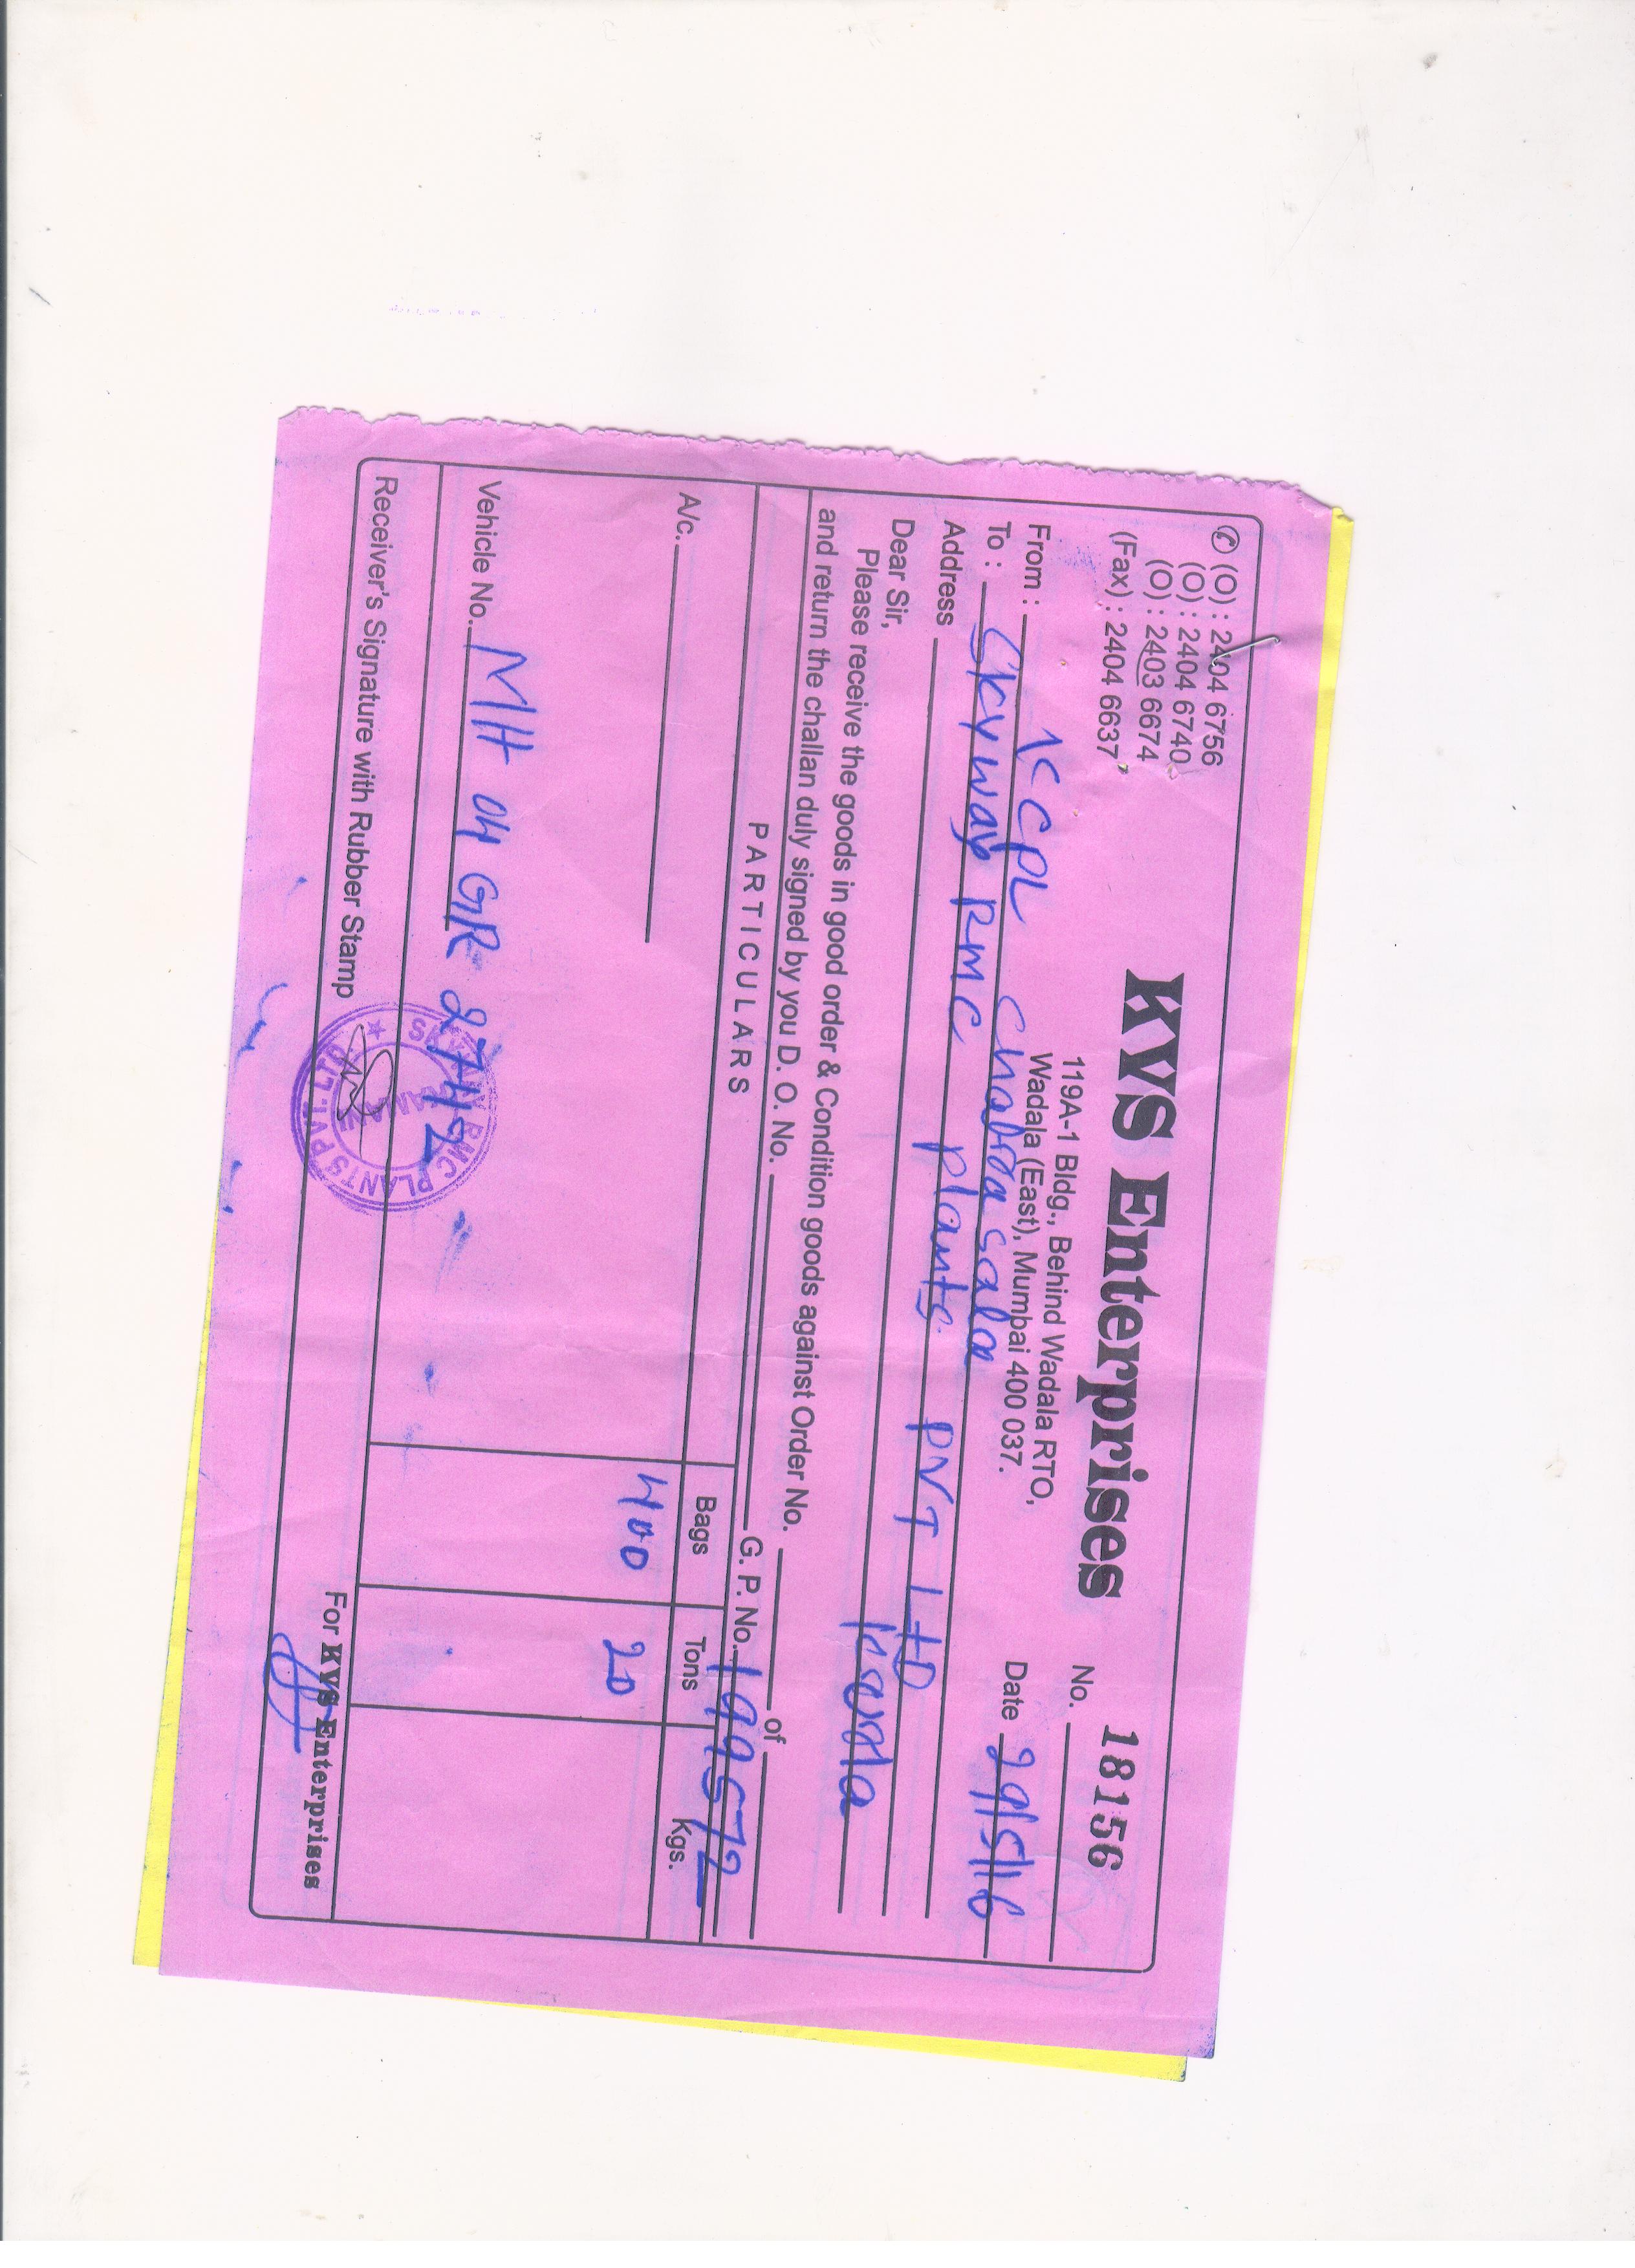 ✆ (O) : 2404 6756
(O) : 2404 6740
(O) : 2403 6674
(Fax) : 2404 6637
KVS Enterprises
119A-1 Bldg., Behind Wadala RTO,
Wadala (East), Mumbai 400 037.
No. 18156
Date 29/5/16
From : KCPL
To : Skyway RMC Plants PVT LTD
Address
Dear Sir,
Please receive the goods in good order & Condition goods against Order No. of
and return the challan duly signed by you D. O. No. G. P. No. 199572
PARTICULARS Bags Tons Kgs.
A/c. 400 20
Vehicle No. MH 04 GR 2742
SKYWAY RMC PLANTS PVT. LTD. ★
Receiver's Signature with Rubber Stamp
For KVS Enterprises